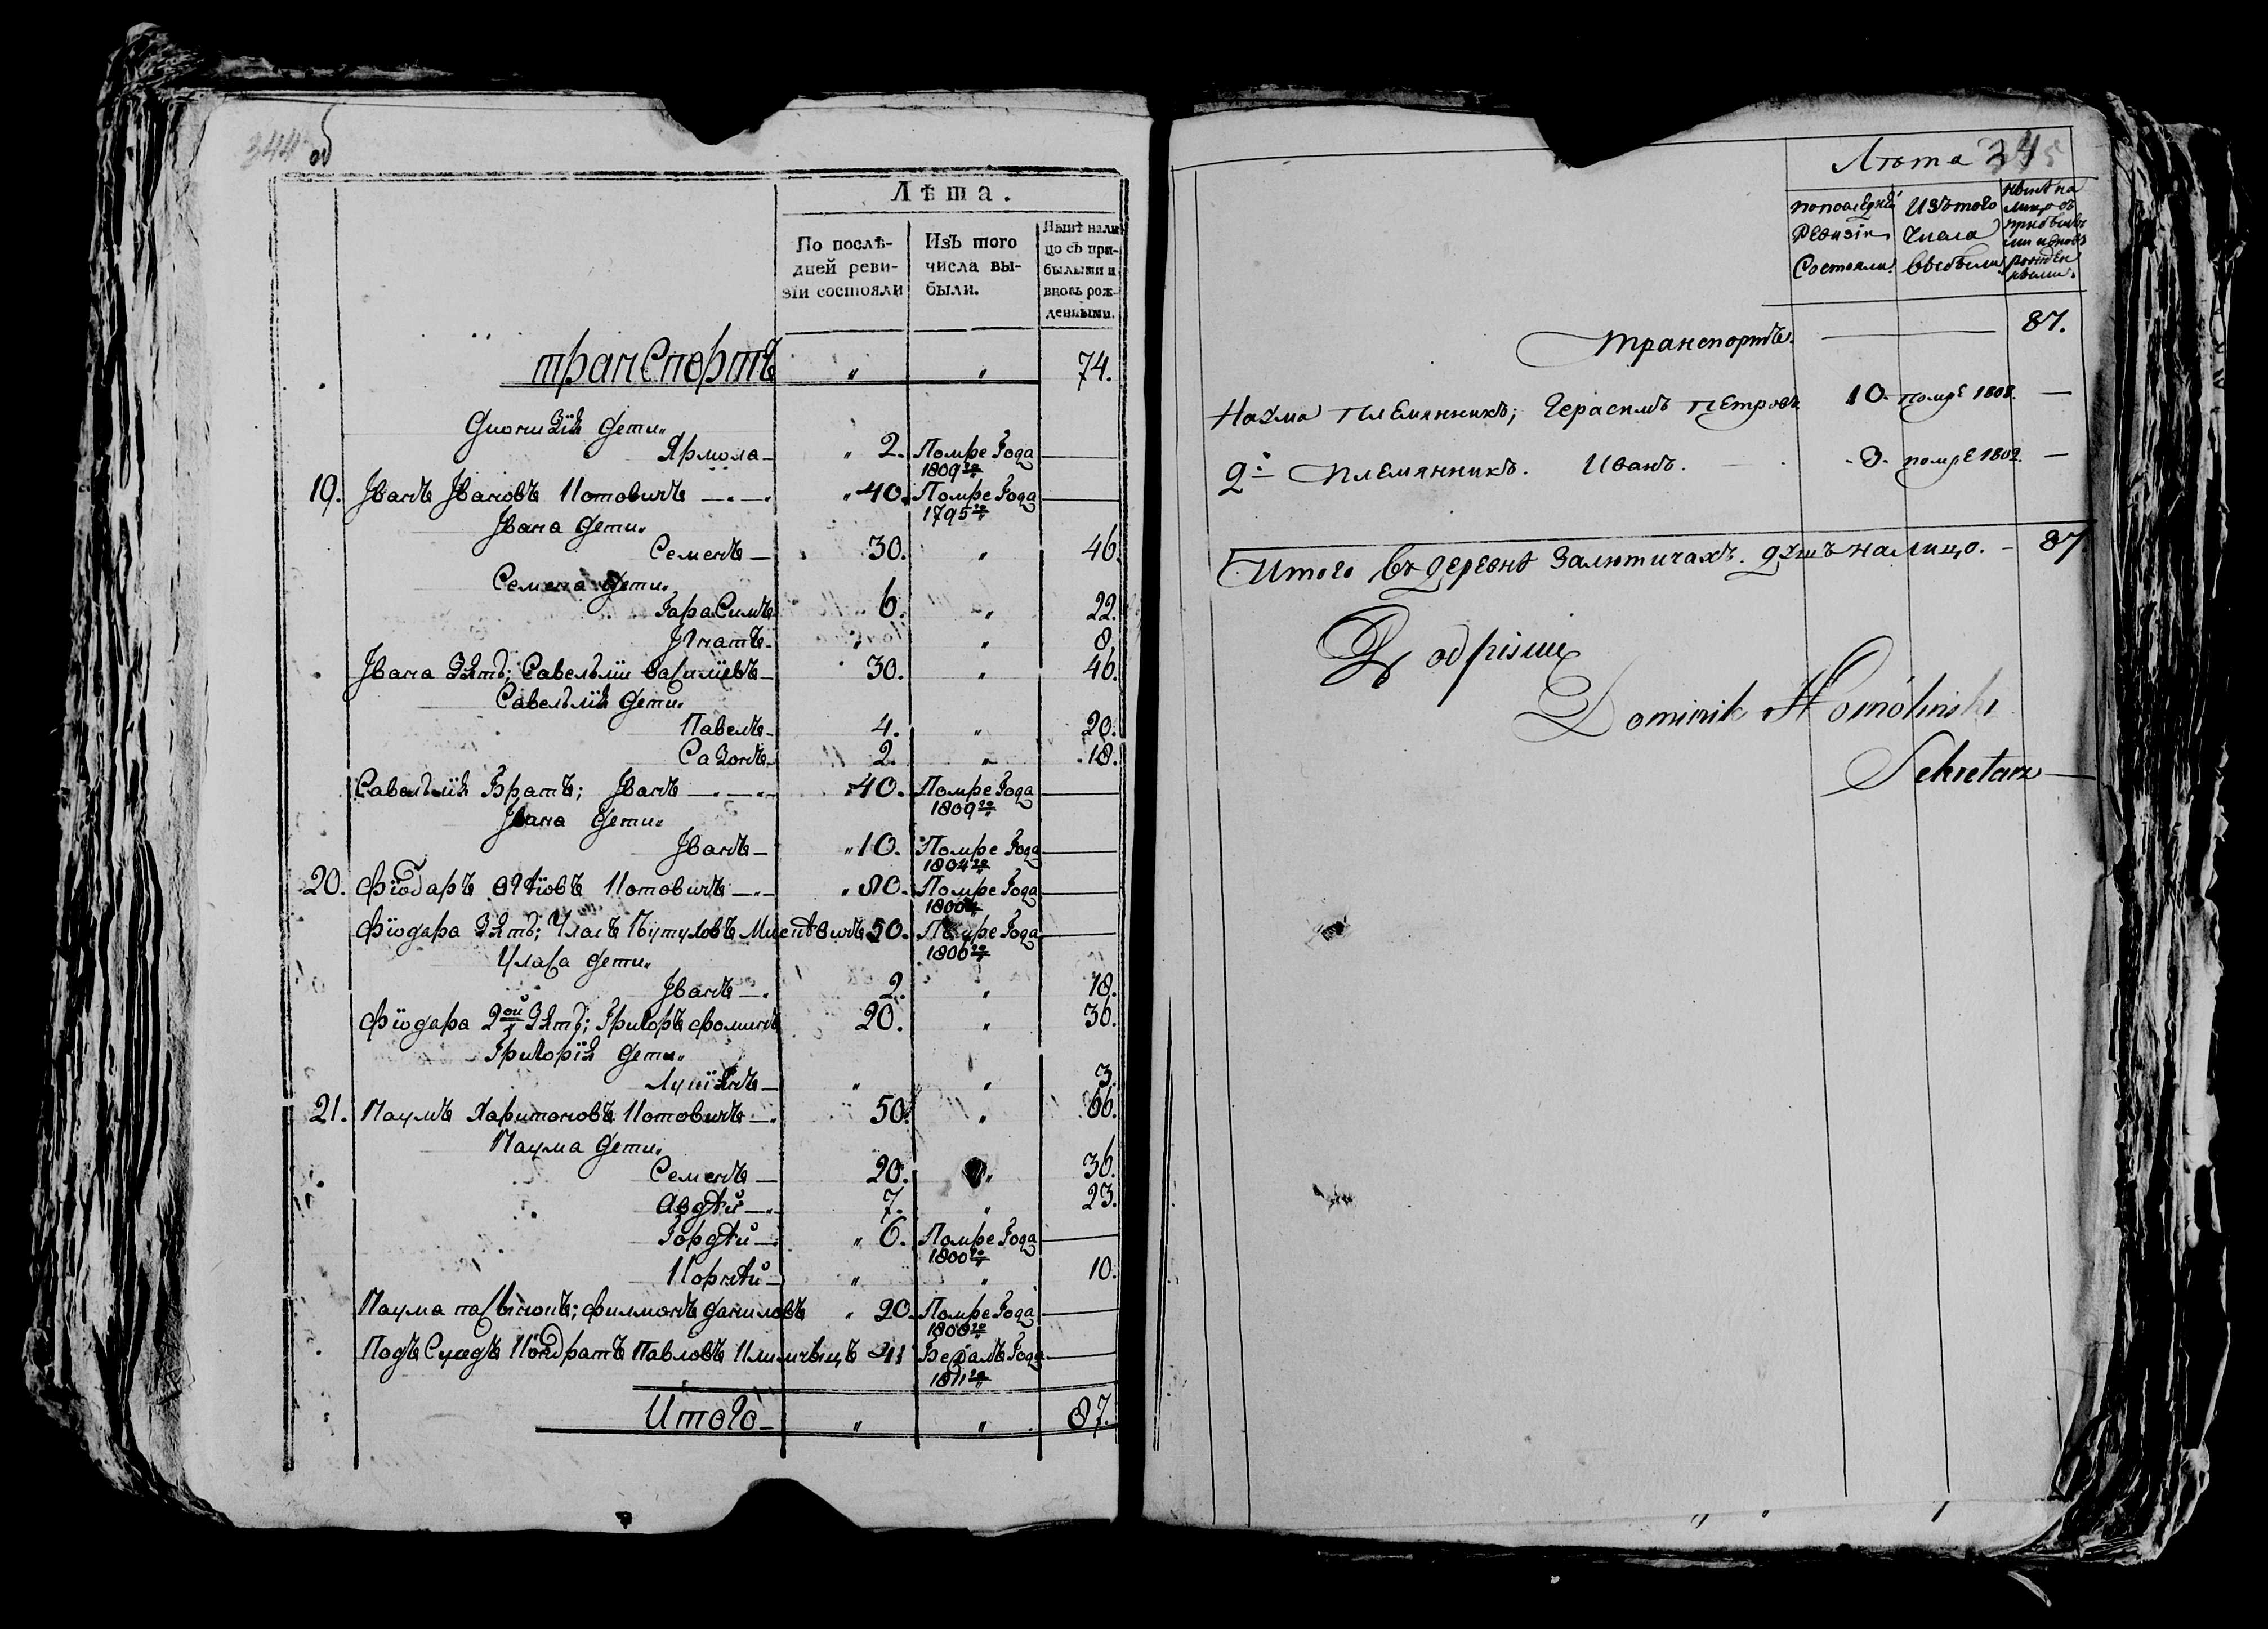 344 об
Лѣта.
По послѣ-
дней реви-
зіи состояли
Изъ того
числа вы-
были.
Нынѣ нали
цо съ при-
былыми и
вновь рож-
денными.
транспортъ " " 74.
Дионизія дети"
Ярмола " 2. Помре года
1809го
19. Іванъ Івановъ Котовичъ " 40. Помре года
1795го
Івана дети"
Семенъ 30. " 46.
Семена дети"
Гарасимъ 6. " 22.
Ігнатъ " " 8
Івана зять; Савельій Васильевъ 30. " 46.
Савельія дети"
Павелъ 4. " 20.
Сазонъ 2. " 18.
Савельія братъ; Іванъ 40. Помре года
1809го
Івана дети"
Іванъ " 10. Помре года
1804го
20. Фіодаръ Котовичъ " 80. Помре года
1800
Фіодара зять; 50. Помре года
1806го
дети"
Іванъ 2. " 18.
Фіодара 2ой зять; Григоръ Фоминъ 20. " 36.
Григорія дети"
" " 3.
21. Наумъ Харитоновъ Котовичъ 50. " 66.
Наума дети"
Семенъ 20. " 36.
Авдѣй 7. " 23.
Гордѣй " 6. Помре года
1800го
Корнѣй " " 10.
Наума пасынокъ; Филмонъ Даниловъ " 20. Помре года
1808го
Подъсуседъ Кондратъ Павловъ 41 Бежалъ года
1811го
Итого " " 87.
Лѣта 34
по последней
ревизіи
состояли
изъ того
числа
выбыли
нынѣ на
лицо съ
прибылы
ми и вновь
рожден
ными.
транспортъ. 87.
Наума племянникъ; Герасимъ Петровъ 10. помре 1808.
2й племянникъ. Иванъ. помре 1802.
Итого въ деревнѣ Залютичахъ. душъ налицо. - 87
Podpisuię
Dominik
Sekretarz